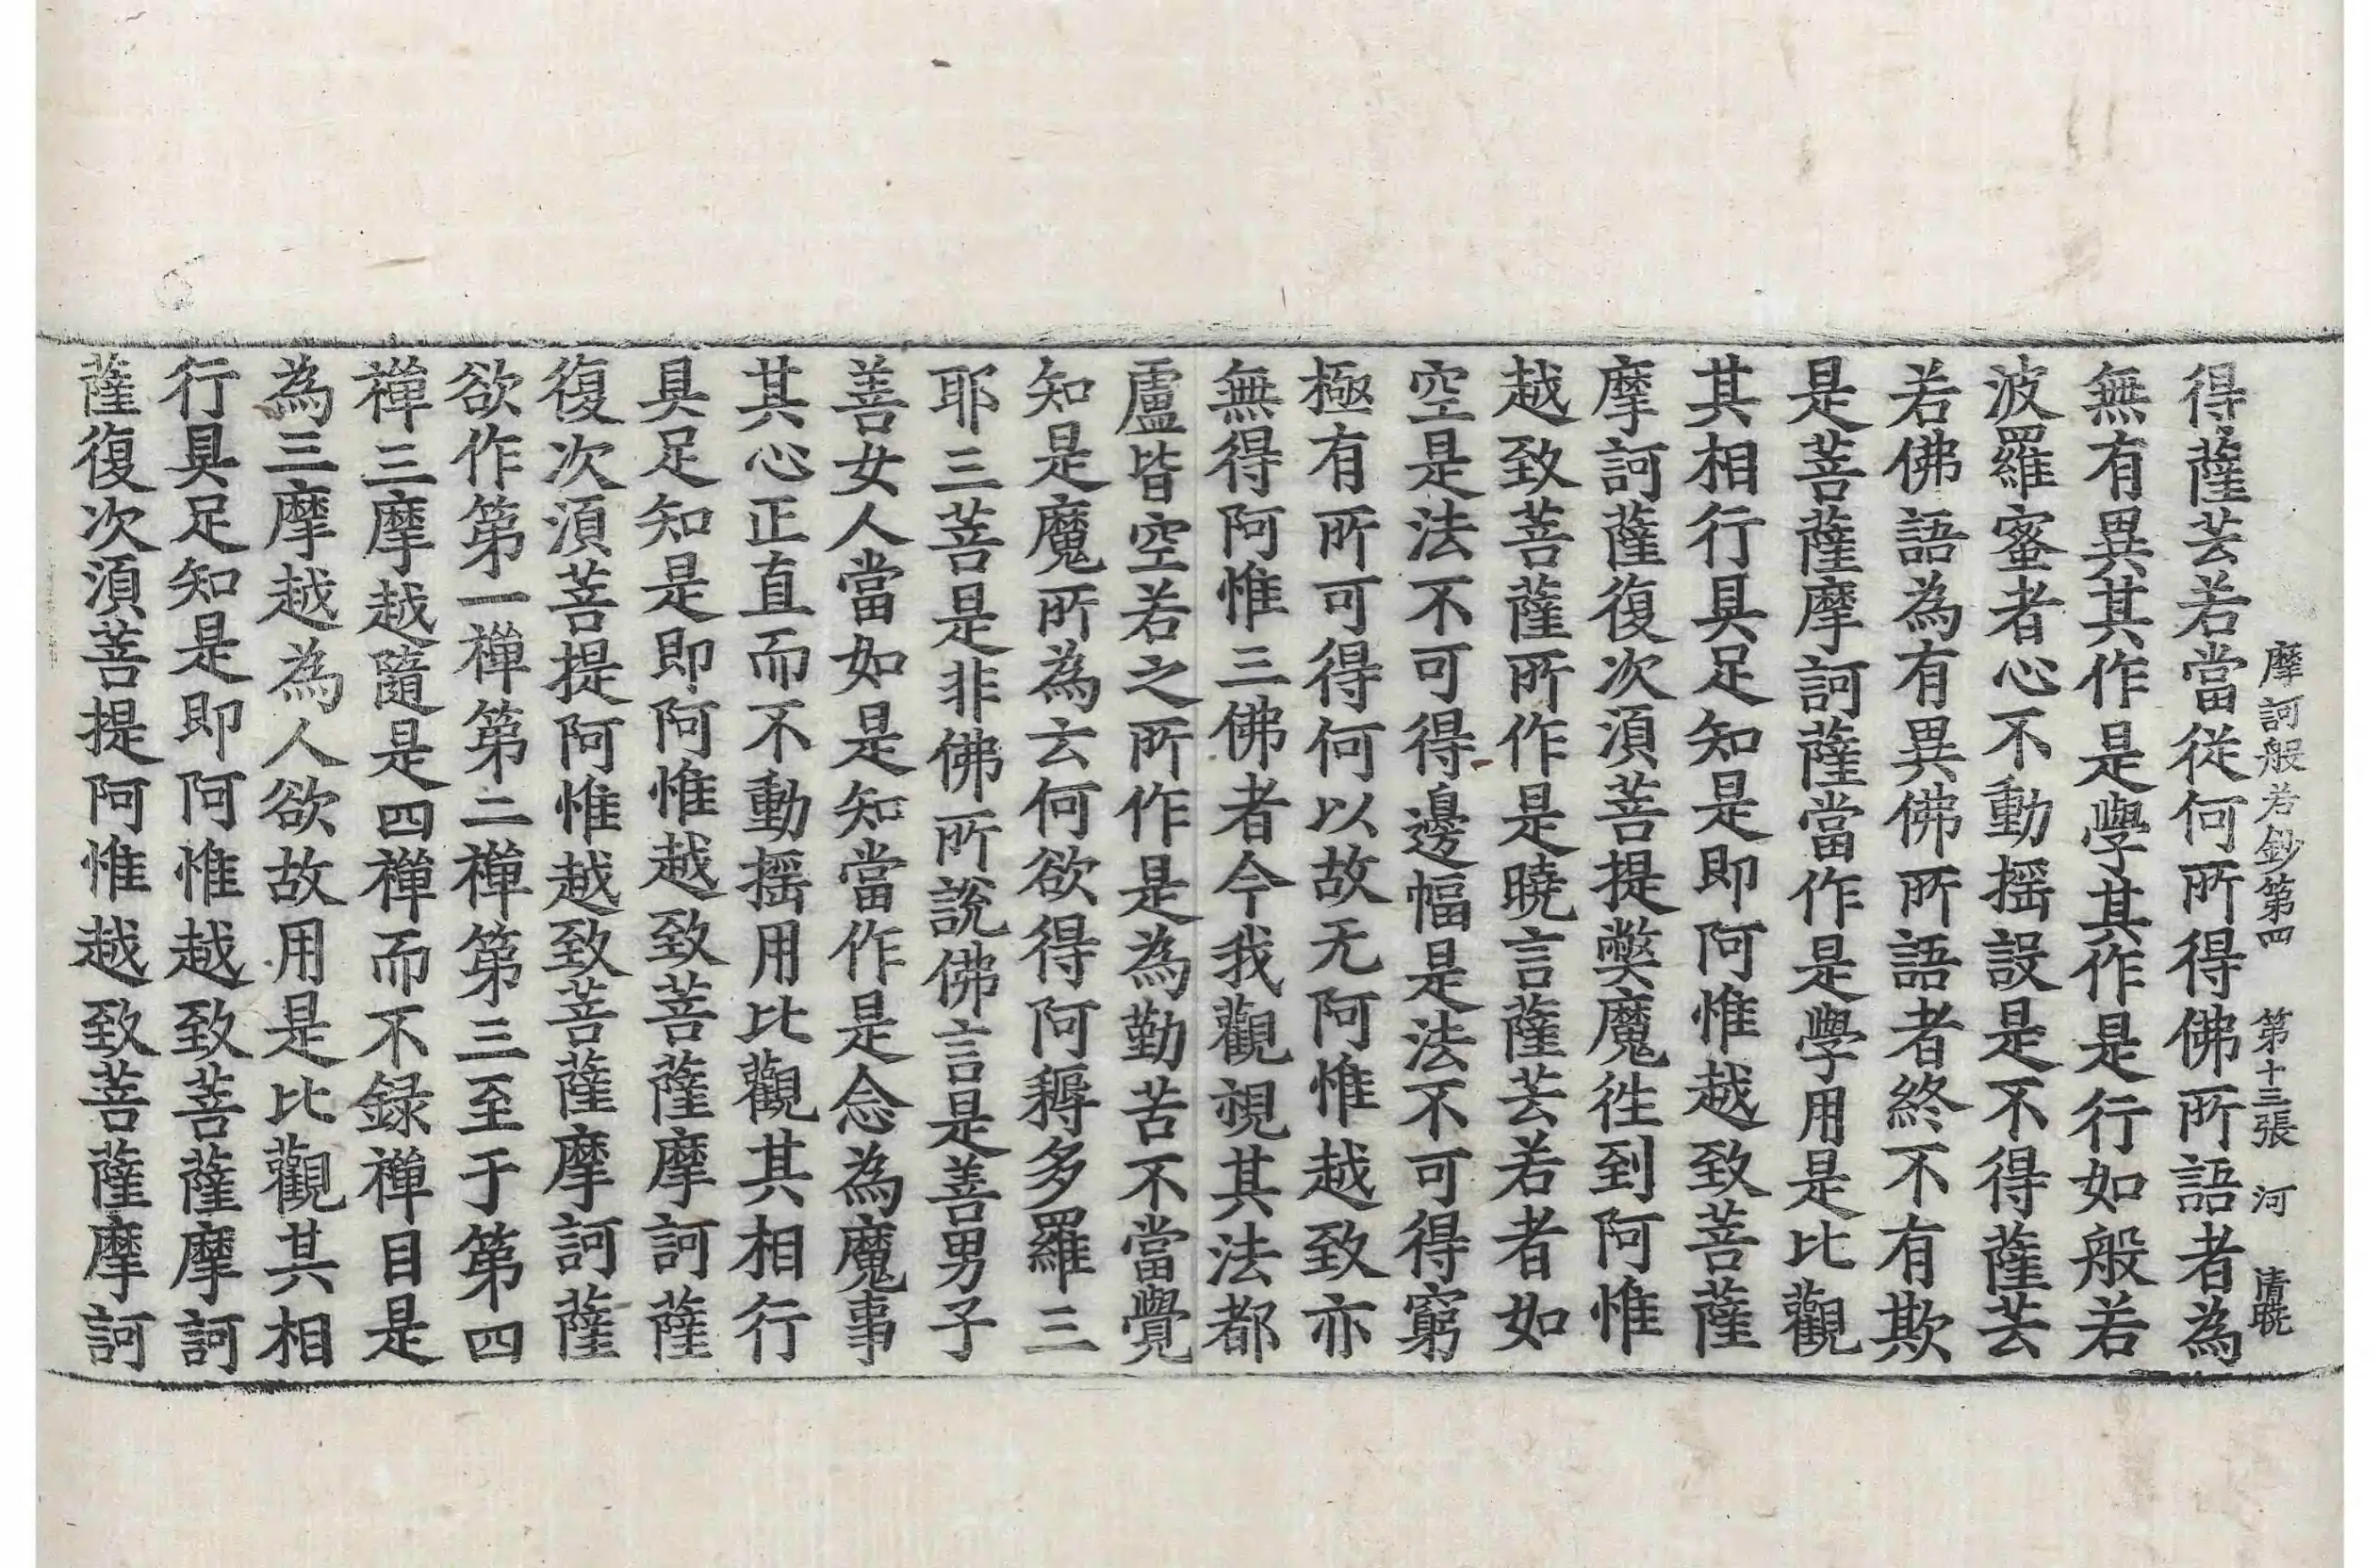 摩訶般若鈔第四　第十三張　河　清曉
得薩芸若當從何所得佛所語者為
無有異其作是學其作是行如般若
波羅蜜者心不動揺設是不得薩芸
若佛語為有異佛所語者終不有欺
是菩薩摩訶薩當作是學用是比觀
其相行具足知是即阿惟越致菩薩
摩訶薩復次須菩提獘魔徃到阿惟
越致菩薩所作是曉言薩芸若者如
空是法不可得邊幅是法不可得窮
極有所可得何以故无阿惟越致亦
無得阿惟三佛者今我觀視其法都
盧皆空若之所作是為勤苦不當覺
知是魔所為云何欲得阿耨多羅三
耶三菩是非佛所說佛言是善男子
善女人當如是知當作是念為魔事
其心正直而不動揺用比觀其相行
具足知是即阿惟越致菩薩摩訶薩
復次須菩提阿惟越致菩薩摩訶薩
欲作第一禪第二禪第三至于第四
禪三摩越隨是四禪而不録禪目是
為三摩越為人欲故用是比觀其相
行具足知是即阿惟越致菩薩摩訶
薩復次須菩提阿惟越致菩薩摩訶